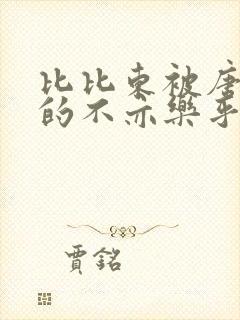 比比東被唐
的不亦樂乎
賈銘